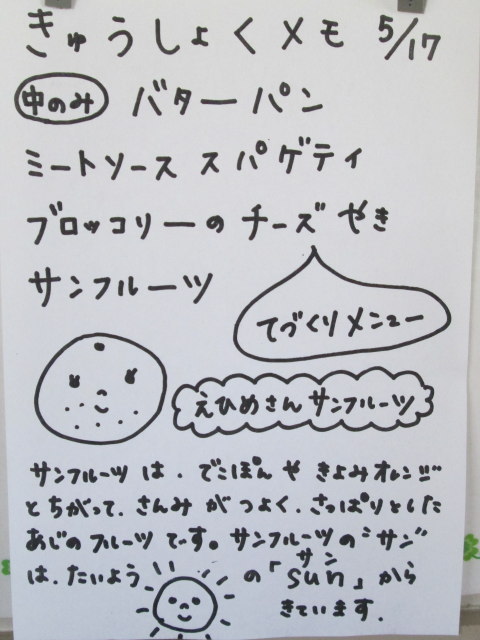 きゅうしょくメモ 5/17
中のみ バターパン
ミートソース スパゲティ
ブロッコリーの チーズ やき
サンフルーツ
てづくりメニュー
えひめさん サンフルーツ
サンフルーツ は、でこぽん や きよみオレンジ
と ちがって、さんみ が つよく、さっぱりとした
あじの フルーツ で～す。サンフルーツの"サン"
は、たいよう の「sun」から
サン
きています。